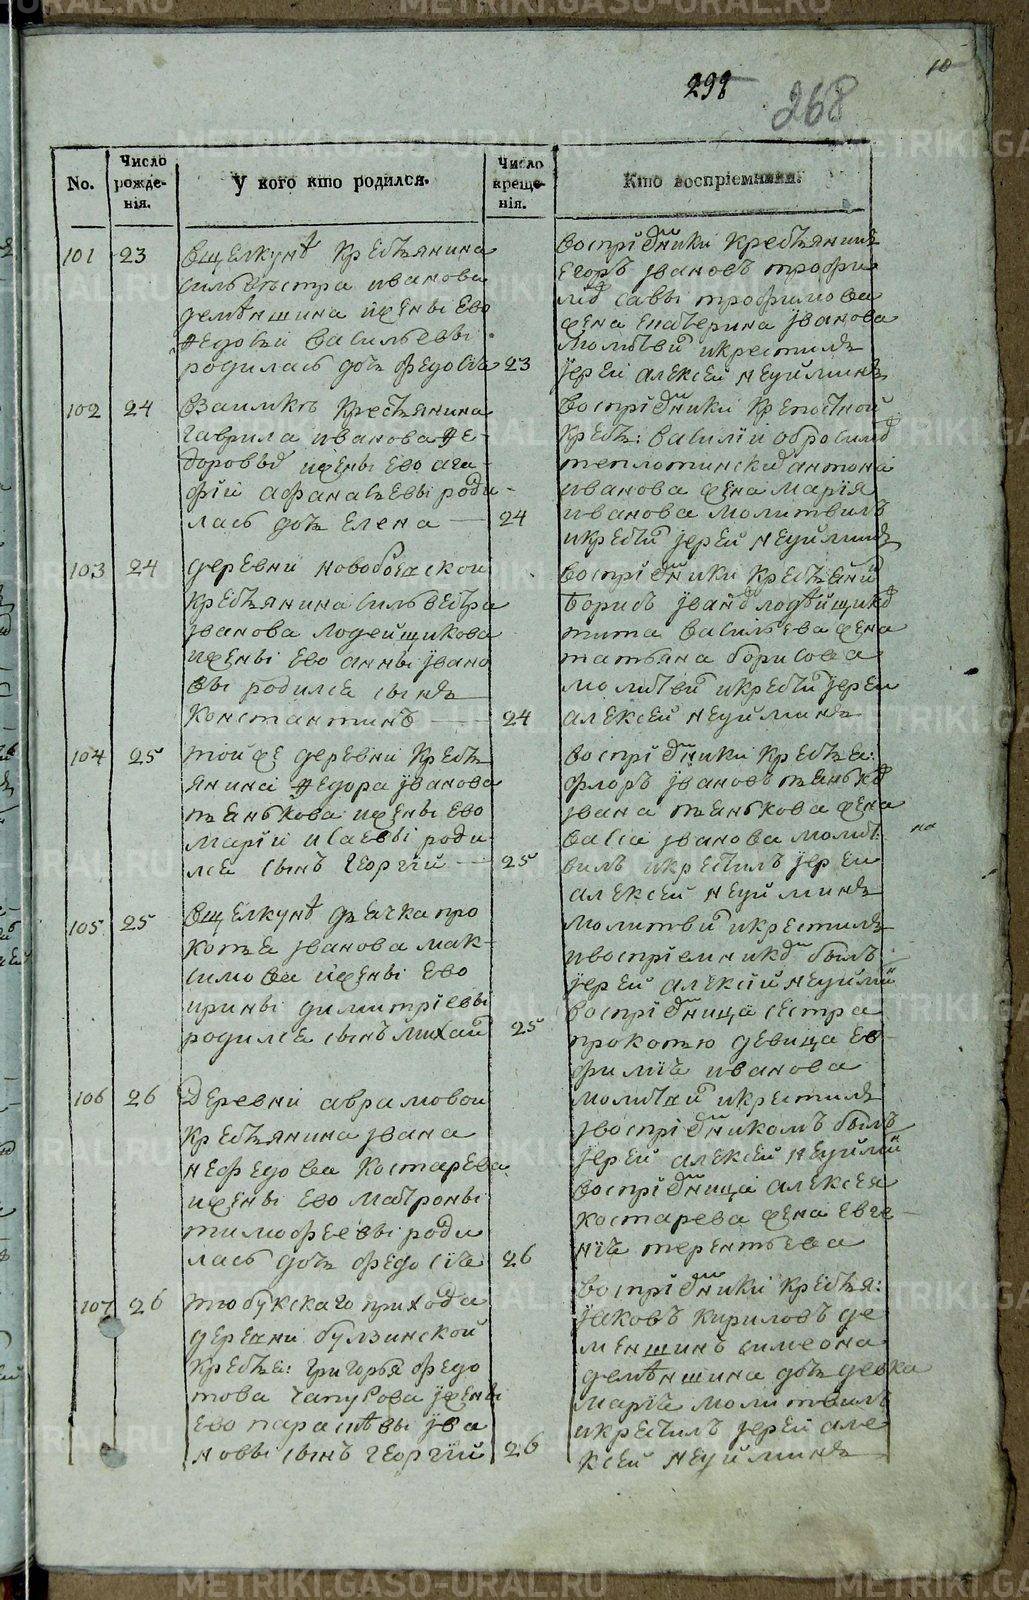 10
298
268
No.
Число рожде-нія.
У кого кто родился.
Число креще-нія.
Кто воспріемники.
101 23 вщелкунѣ крестьянина
сильвестра иванова
деменшина ижены ево
федосьи васильевы
родилась дочь федосья 23
воспріемники крестьянинъ
Егоръ Ивановъ трофи
савы трофимова
жена екатерина Иванова
молитвой икрестилъ
Іерей алексей неуйминъ
102 24 взаимкѣ крестьянина
гаврила иванова фе-
доровыхъ ижены ево ага-
фіи афанасьевы роди-
лась дочь елена 24
воспріемники крепостной
крест: василіи
антона
иванова жена марія
иванова молитвилъ
икрестилъ Іерей неуйминъ
103 24 деревни новобоевской
крестьянина сильвестра
Иванова лодейщикова
ижены ево анны Ивано
вы родился сынъ
константинъ 24
воспріемники крестьянинъ
борисъ Ивановъ лодейщиковъ
тита васильева жена
татьяна борисова
молитвой икрестилъ Іереи
алексей неуйминъ
104 25 тойже деревни кресть
янина федора Иванова
пьянькова ижены ево
маріи исаевы роди
лся сынъ георгій 25
воспріемники крестья:
флоръ Ивановъ пьяньковъ
Ивана пьянькова жена
васса Иванова молит
вилъ икрестилъ Іереи
алексей неуйминъ
105 25 вщелкунѣ дьячка про
копья Иванова мак-
симова ижены ево
ирины димитріевы
родился сынъ михаилъ 25
молитвилъ икрестилъ
ивоспріемникомъ былъ
Іерей алексій неуйминъ
воспріемница сестра
прокопью девица ев-
фимія иванова
106 26 Деревни аврамовой
крестьянина Ивана
нефедова костарева
ижены ево матроны
тимофеевы роди
лась дочь федосія 26
молитвилъ икрестилъ
Івоспріемникомъ былъ
Іерей алексей неуйминъ
воспріемница алексея
костарева жена евге-
нія терентьева
107 26 тюбукскаго прихода
деревни булзинской
крестья: григорья федо
това чапурова Іжены
ево парасковьи Ива
новы сынъ георгій 26
воспріемники крестья:
Іаковъ кириловъ де
меншинъ симеона
деменшина дочь девка
марія молитвилъ
икрестилъ Іереи але
ксей неуйминъ
METRIKI.GASO-URAL.RU